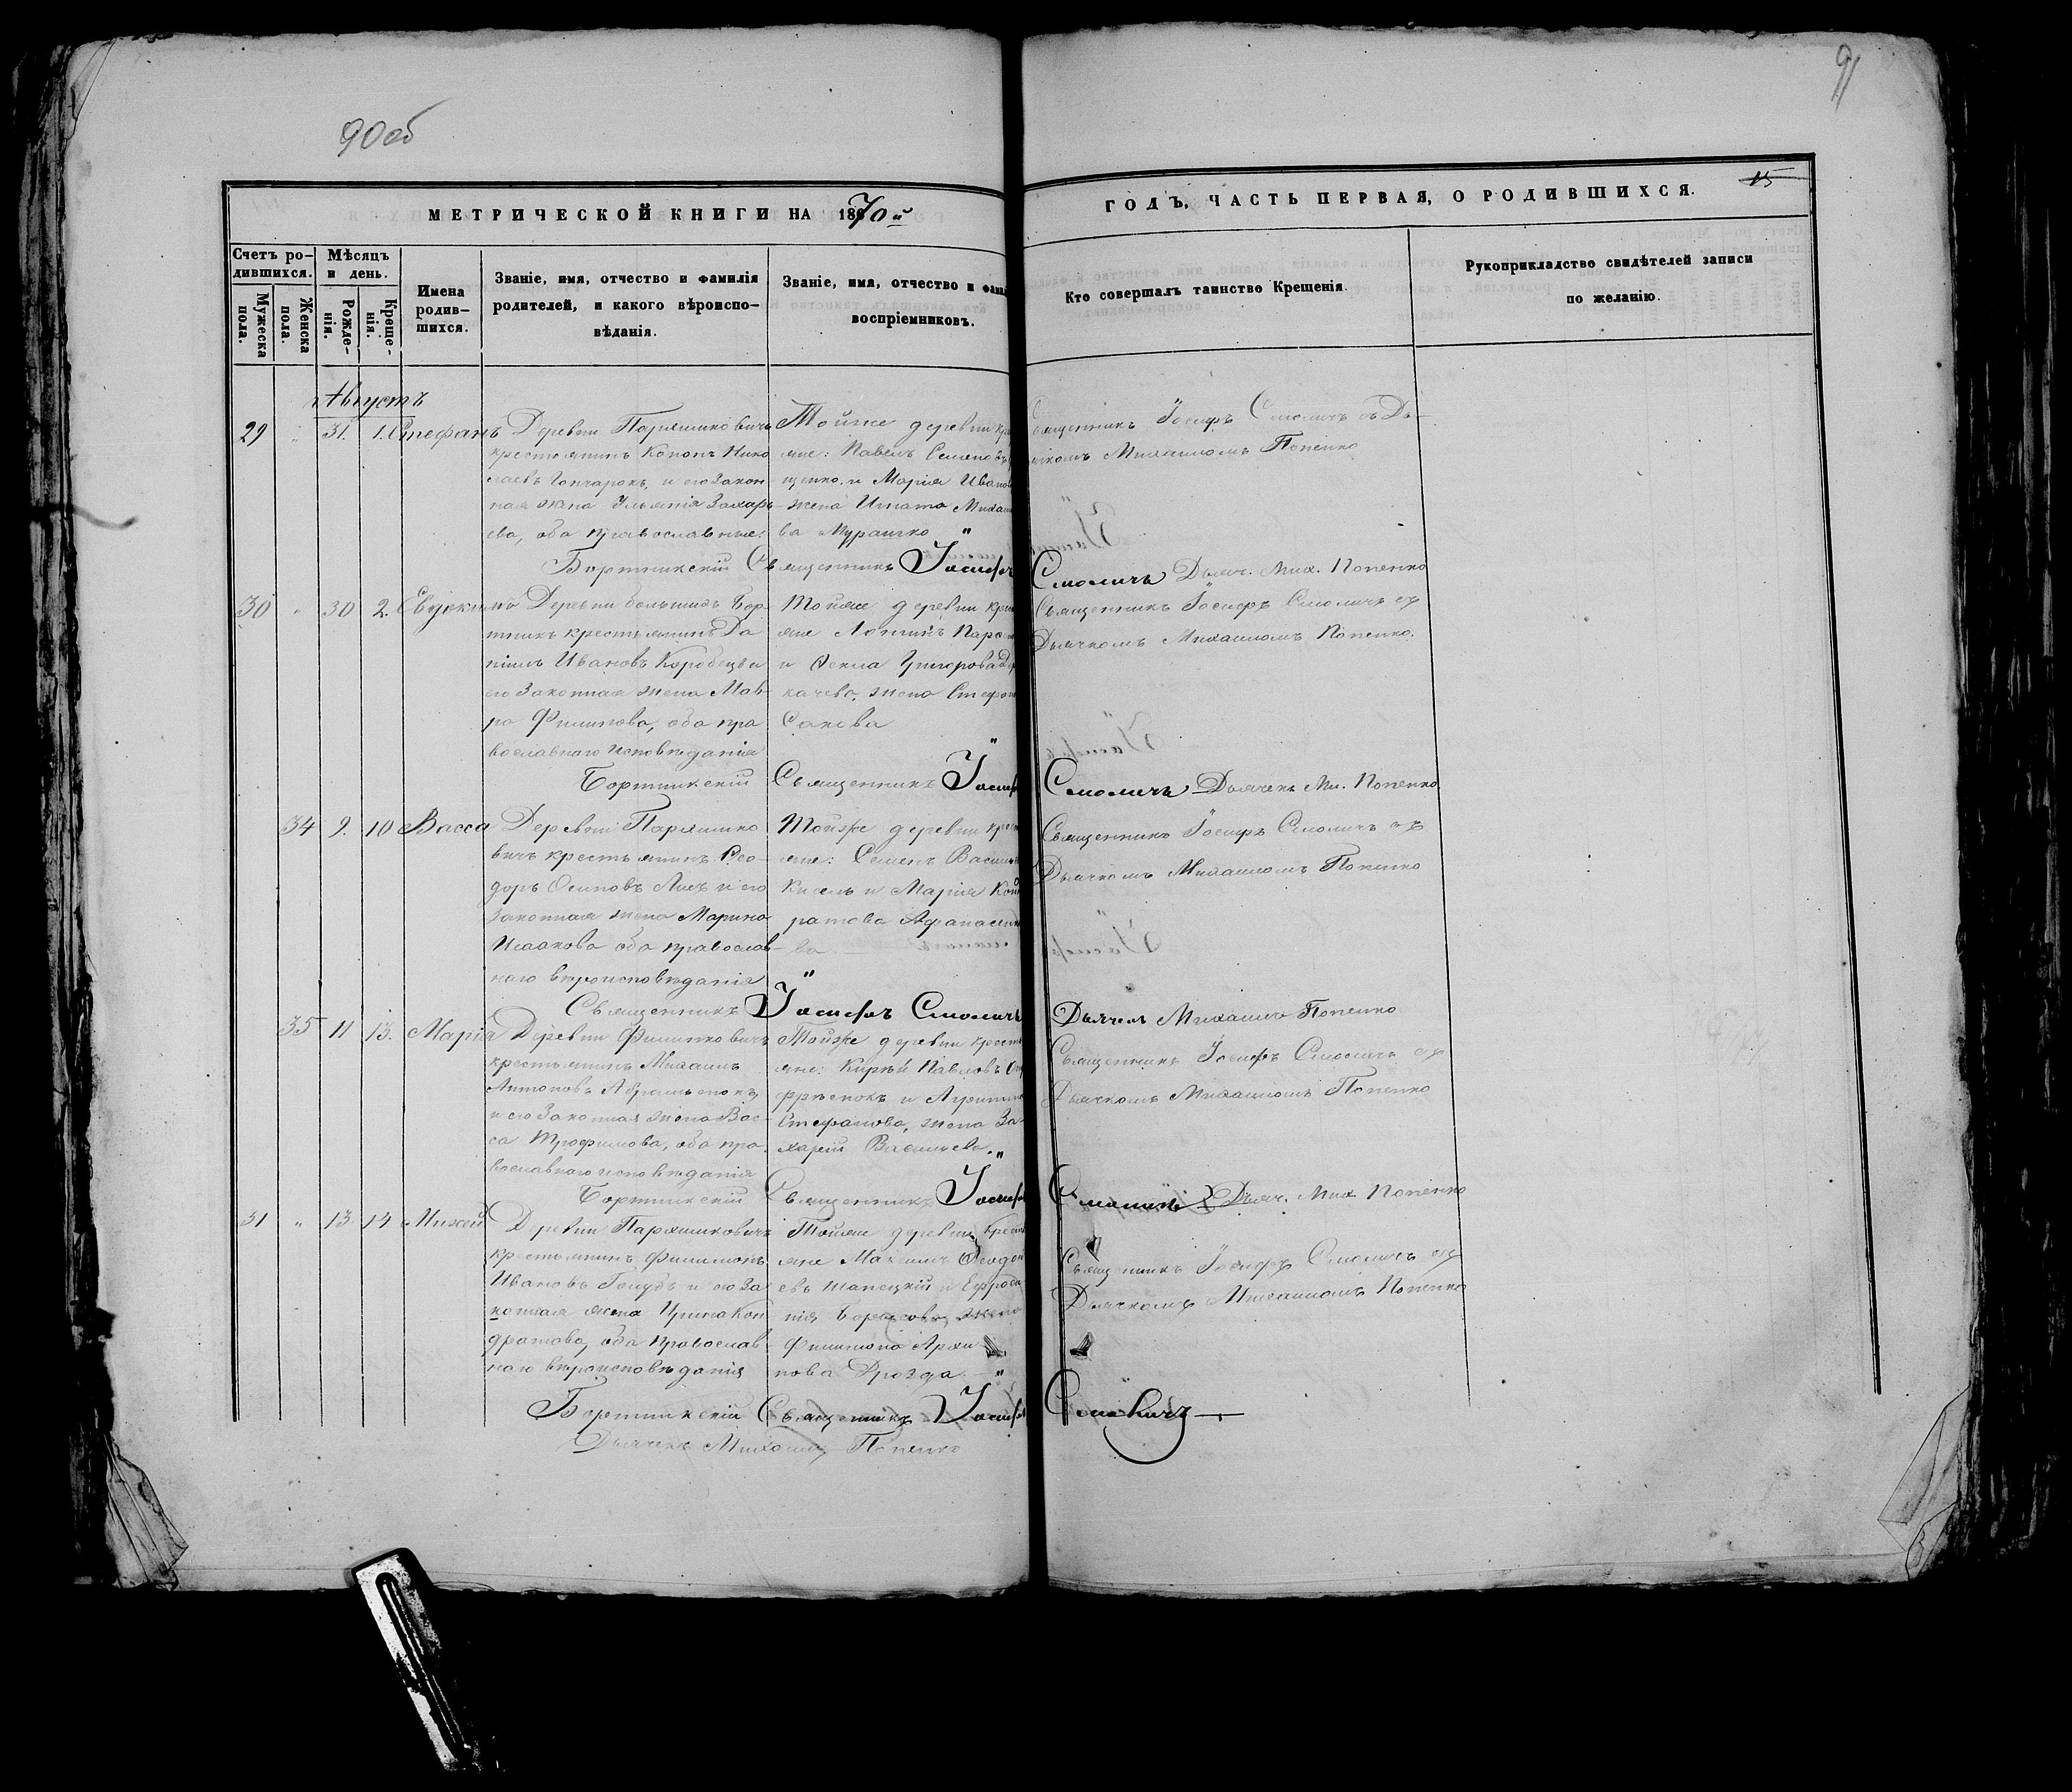 90 об
91
МЕТРИЧЕСКОЙ КНИГИ НА 1870й
ГОДЪ, ЧАСТЬ ПЕРВАЯ, О РОДИВШИХСЯ.
15
Счетъ ро-
дившихся.
Мужеска пола.
Женска пола.
Мѣсяцъ
и день.
Рожде-
нія.
Креще-
нія.
Имена
родив-
шихся.
Званіе, имя, отчество и фамилія
родителей, и какого вѣроиспо-
вѣданія.
Званіе, имя, отчество и фами
воспріемниковъ.
Кто совершалъ таинство Крещенія.
Рукоприкладство свидѣтелей записи
по желанію.
Августъ
29 " 31. 1. Стефанъ
Деревни Паршиковичъ
крестьянинъ Кононъ Нико
лаевъ Гончарокъ, и его закон-
ная жена Ульянія Захарь-
ева, оба православные.
Тойже деревни кре
яне: Павелъ Семеновъ
щенко, и Марія Иванов
жена Игната Михаи
ва Мурашко
Священникъ Іосифъ Смоличъ съ Дь-
ячкомъ Михаиломъ Попенко
Бортникскій Священникъ Іосифъ Смоличъ Дьяч. Мих. Попенко
30 " 30 2. Евдокимъ
Деревни большихъ Бор-
тникъ крестьянинъ Да
ніилъ Ивановъ Коробецъ и
его законная жена Мав-
ра Филипова, оба пра
вославнаго исповѣданія
Тойже деревни крест
яне
и Фекла Григорова
качева, жена Стефан
Сакова
Священникъ Іосифъ Смоличъ съ
Дьячкомъ Михаиломъ Попенко.
Бортникскій Священникъ Іосифъ Смоличъ Дьячекъ Ми. Попенко
34 9. 10 Васса
Деревни Паршико
вичъ крестьянинъ Фео-
доръ Осиповъ Лисъ и его
законная жена Марина
Исаакова оба православ-
наго вѣроисповѣданія
Тойже деревни крест
яне: Семенъ Василь
Кисель и Марія Кон
ратова Афанасье
ва
Священникъ Іосифъ Смоличъ съ
Дьячкомъ Михаиломъ Попенко
Священникъ Іосифъ Смоличъ Дьячекъ Михаилъ Попенко
35 11 13. Марія
Деревни Филипковичъ
крестьянинъ Михаилъ
Антоновъ Абрамьенокъ
и его законная жена Вас-
са Трофимова, оба пра-
вославнаго исповѣданія
Тойже деревни крест
яне: Кирѣй Павловъ
фрѣенокъ и Агрипина
Стефанова, жена За-
харіи Васильева.
Священникъ Іосифъ Смоличъ съ
Дьячкомъ Михаиломъ Попенко
Бортникскій Священникъ Іосифъ Смоличъ Дьяч. Мих Попенко
31 " 13 14 Михей
Деревни Паршиковичъ
крестьянинъ Филимонъ
Ивановъ Голубъ и его за
конная жена Ирина Кон
дратова, оба православ-
наго вѣроисповѣданія
Тойже деревни крест
яне Максимъ Феодо
евъ Шапецкій и Ефроси
нія Борисова, жена
Филимона Архи
пова Дрозда
Священникъ Іосифъ Смоличъ съ
Дьячкомъ Михаиломъ Попенко
Бортникскій Священникъ Іосифъ Смоличъ
Дьячекъ Михаилъ Попенко